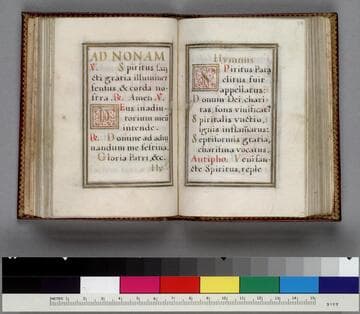 AD NONAM
V. Spiritus san
cti gratia illuminet
sensus, & corda no-
stra. R. Amen. V.
DEus in adiu-
torium meū
intende.
R. Domine ad adiu
uandum me festina.
Gloria Patri, &c.
Hy-
Hymnus
SPiritus Para
clitus fuit
appellatus:
Donum Dei, chari
tas, fons viuificat⁹
Spiritalis vnctio,
ignis inflamatus:
Septiformis gratia,
charisma vocatus.
Antipho. Veni san-
cte Spiritus, reple